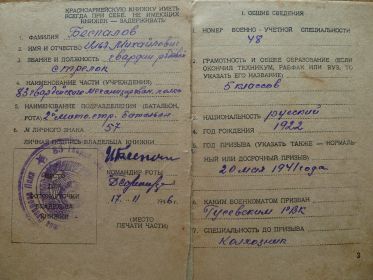 КРАСНОАРМЕЙСКУЮ КНИЖКУ ИМЕТЬ
ВСЕГДА ПРИ СЕБЕ. НЕ ИМЕЮЩИХ
КНИЖЕК — ЗАДЕРЖИВАТЬ
1. ФАМИЛИЯ Беспалов
2. ИМЯ И ОТЧЕСТВО Илья Михайлович
3. ЗВАНИЕ И ДОЛЖНОСТЬ гвардии рядовой
стрелок
4. НАИМЕНОВАНИЕ ЧАСТИ (УЧРЕЖДЕНИЯ)
83 гвардейского механизирован. полка
5. НАИМЕНОВАНИЕ ПОДРАЗДЕЛЕНИЯ (БАТАЛЬОН,
РОТА) 2й мото. стр. батальон
6. № ЛИЧНОГО ЗНАКА 57
ЛИЧНАЯ ПОДПИСЬ ВЛАДЕЛЬЦА КНИЖКИ
КОМАНДИР РОТЫ
17. 11 1946 г.
(МЕСТО
ПЕЧАТИ ЧАСТИ)
МЕСТО
ДЛЯ
ФОТОКАРТОЧКИ
ВЛАДЕЛЬЦА
КНИЖКИ
I. ОБЩИЕ СВЕДЕНИЯ
НОМЕР ВОЕННО-УЧЕТНОЙ СПЕЦИАЛЬНОСТИ
48
2. ГРАМОТНОСТЬ И ОБЩЕЕ ОБРАЗОВАНИЕ (ЕСЛИ
ОКОНЧИЛ ТЕХНИКУМ, РАБФАК ИЛИ ВУЗ, ТО
УКАЗАТЬ ЕГО НАЗВАНИЕ)
5 классов
НАЦИОНАЛЬНОСТЬ русский
4. ГОД РОЖДЕНИЯ 1922
ГОД ПРИЗЫВА (УКАЗАТЬ ТАКЖЕ — НОРМАЛЬ-
НЫЙ ИЛИ ДОСРОЧНЫЙ ПРИЗЫВ)
20 мая 1941 года
КАКИМ ВОЕНКОМАТОМ ПРИЗВАН
Гусевским РВК
7. СПЕЦИАЛЬНОСТЬ ДО ПРИЗЫВА
Колхозник
3